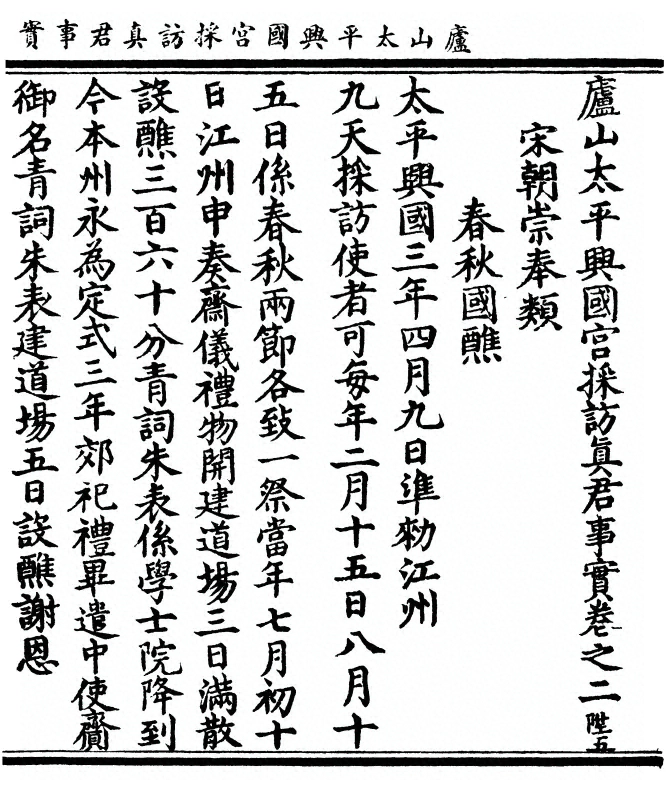 廬山太平興國宮採訪真君事實
廬山太平興國宮採訪眞君事實卷之二 陞五
宋朝崇奉類
春秋國醮
太平興國三年四月九日準勑江州
九天採訪使者可每年二月十五日八月十
五日係春秋兩節各致一祭當年七月初十
日江州申奏齋儀禮物開建道場三日滿散
設醮三百六十分青詞朱表係學士院降到
今本州永為定式三年郊祀禮畢遣中使齎
御名青詞朱表建道場五日設醮謝恩